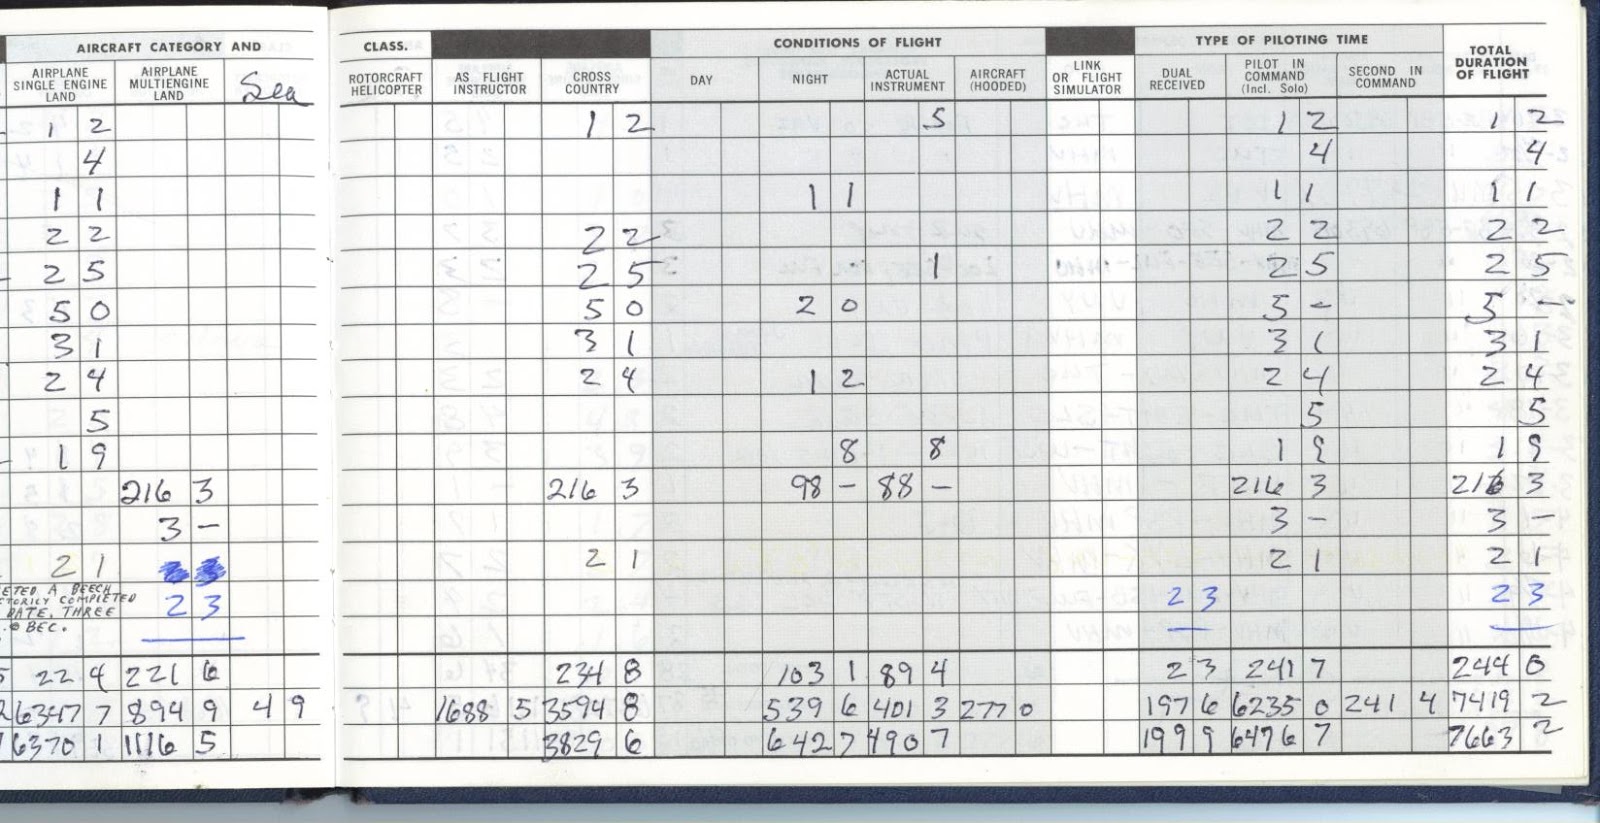 AIRCRAFT CATEGORY AND CLASS. CONDITIONS OF FLIGHT TYPE OF PILOTING TIME TOTAL DURATION OF FLIGHT
AIRPLANE SINGLE ENGINE LAND AIRPLANE MULTIENGINE LAND Sea ROTORCRAFT HELICOPTER AS FLIGHT INSTRUCTOR CROSS COUNTRY DAY NIGHT ACTUAL INSTRUMENT AIRCRAFT (HOODED) LINK OR FLIGHT SIMULATOR DUAL RECEIVED PILOT IN COMMAND (Incl. Solo) SECOND IN COMMAND
1 2 1 2 5 1 2 1 2
4 4 4
1 1 1 1 1 1 1 1
2 2 2 2 2 2 2 2
2 5 2 5 1 2 5 2 5
5 0 5 0 2 0 5 - 5 -
3 1 3 1 3 1 3 1
2 4 2 4 1 2 2 4 2 4
5 5 5
1 9 8 8 1 9 1 9
216 3 216 3 98 - 88 - 216 3 216 3
3 - 3 - 3 -
2 1 2 1 2 1 2 1
ETED A BEECH
TORILY COMPLETED 2 3 2 3 2 3
DATE, THREE
. @ BEC.
22 4 221 6 234 8 103 1 89 4 2 3 241 7 244 0
6347 7 894 9 4 9 1688 5 3594 8 539 6 401 3 277 0 197 6 6235 0 241 4 7419 2
6370 1 1116 5 3829 6 642 7 490 7 199 9 6476 7 7663 2